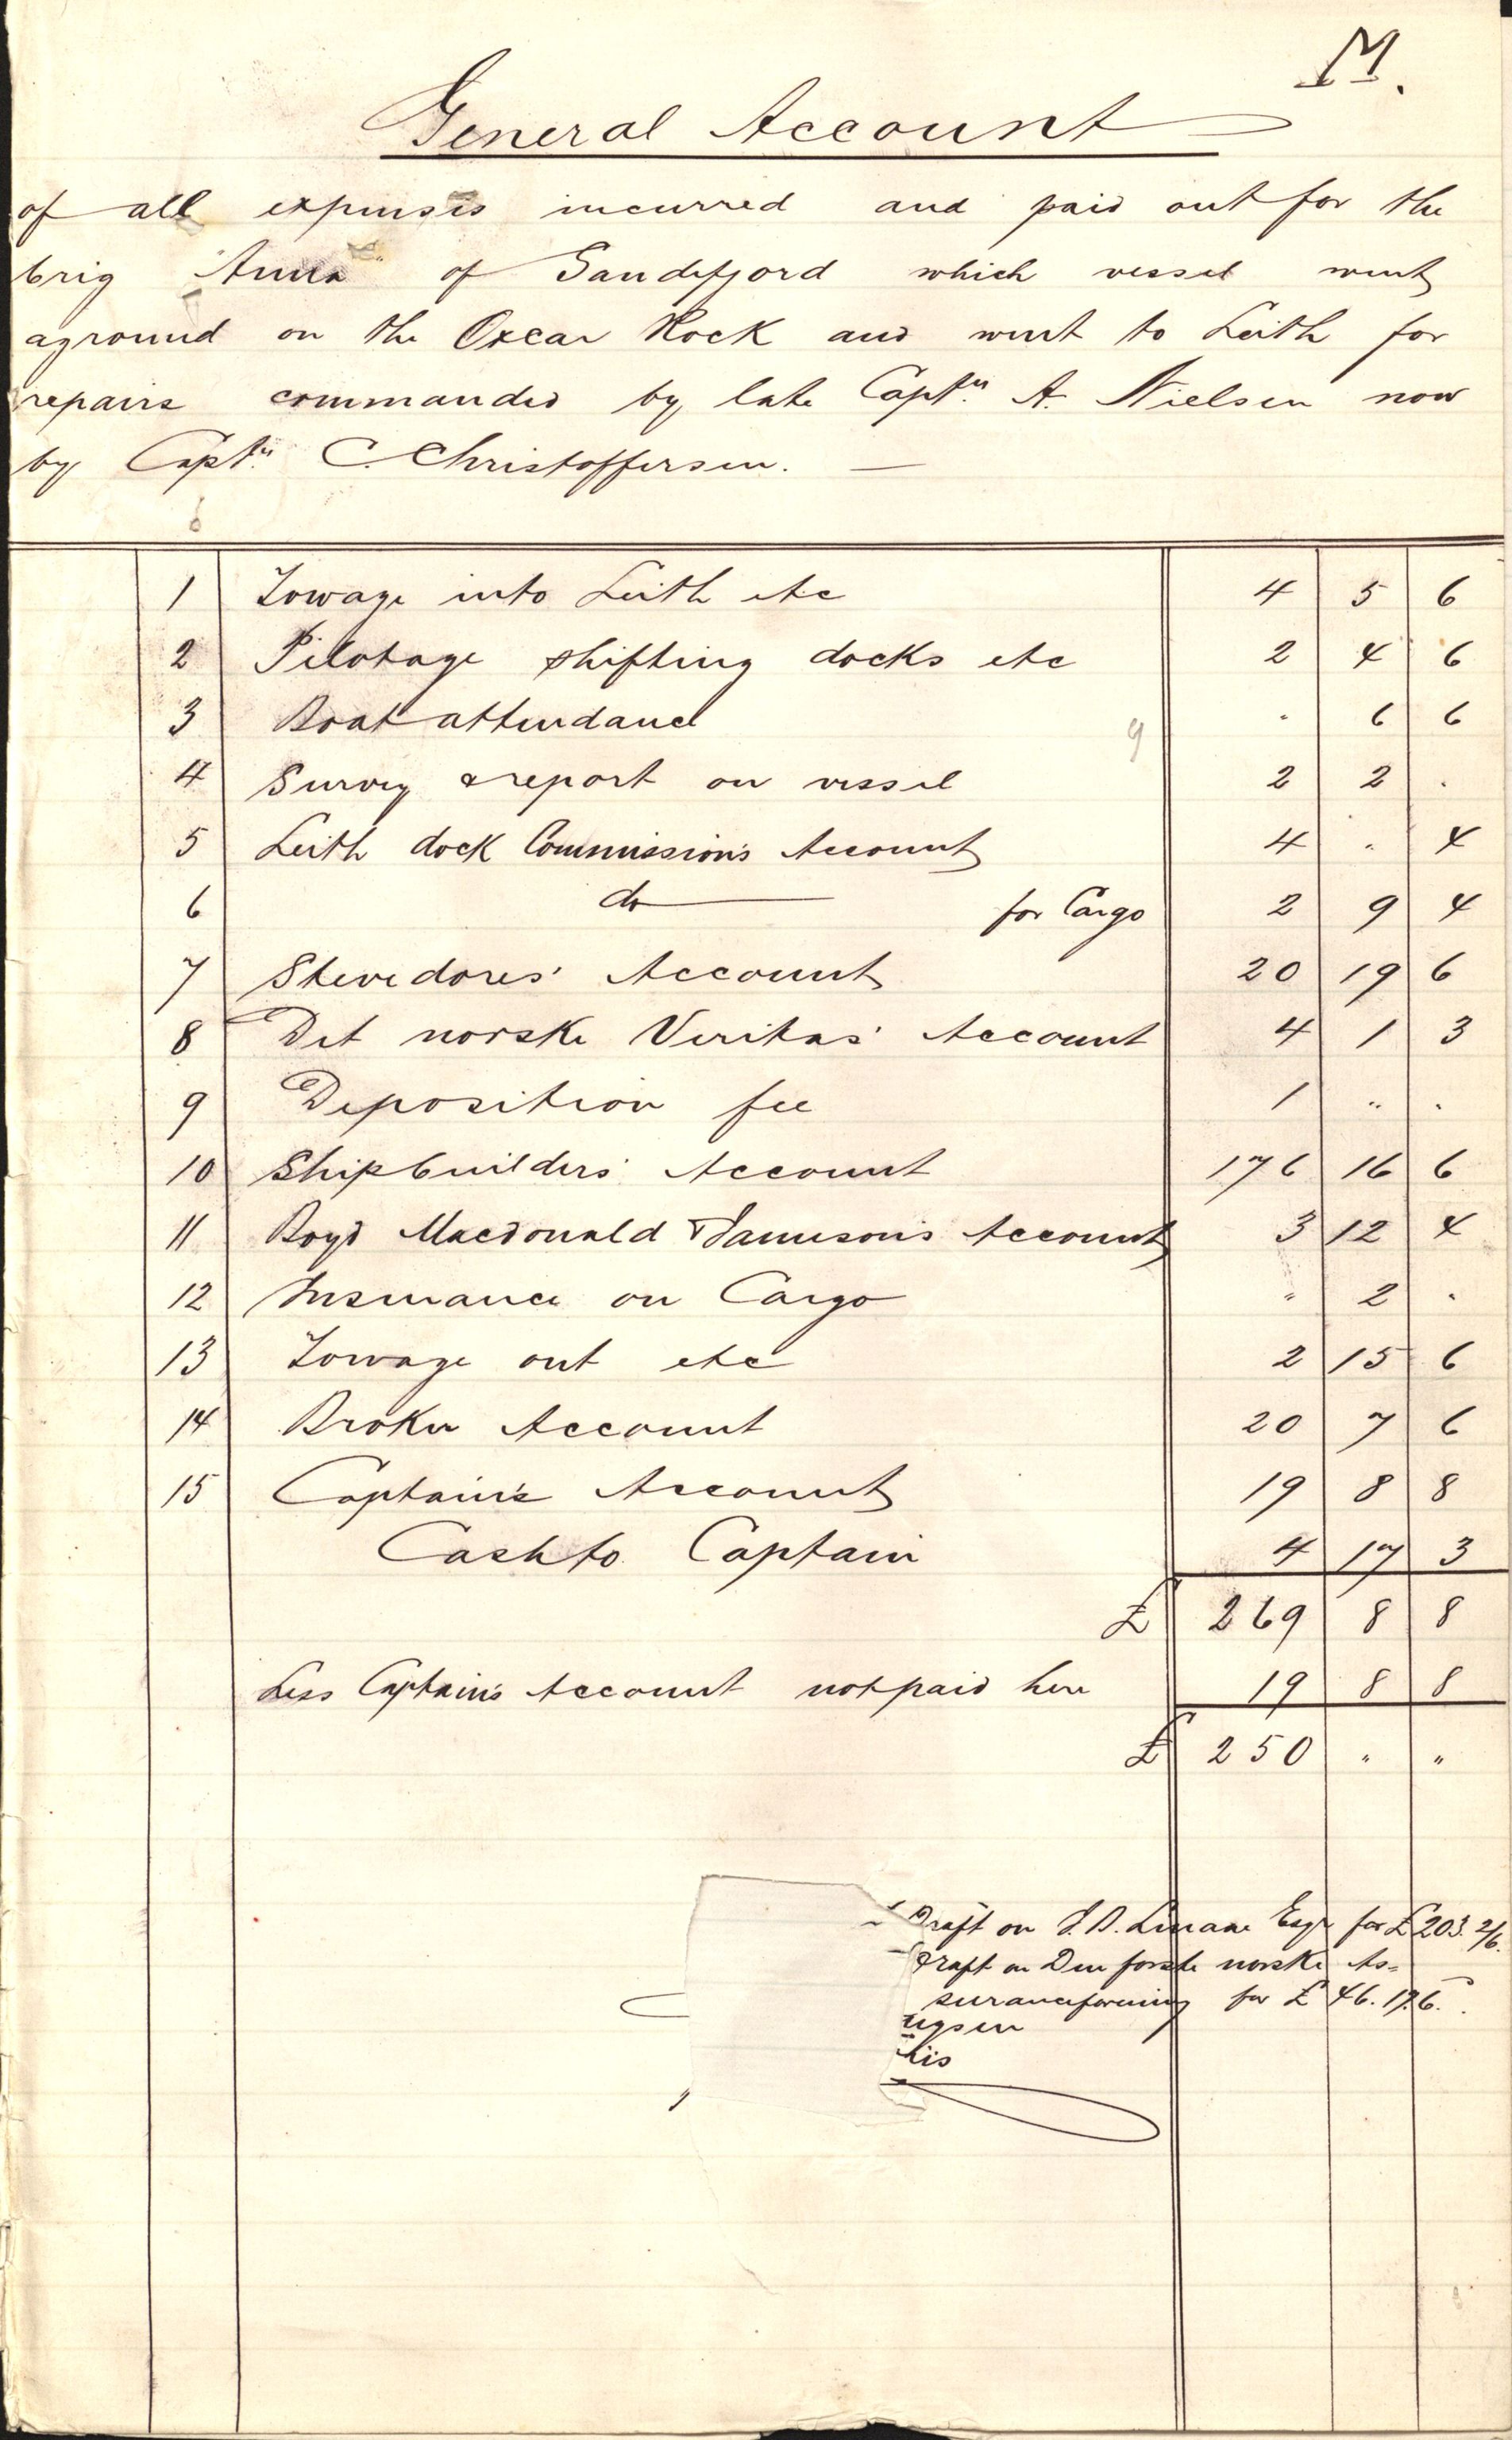 M.
General Account
of all expenses incurred and paid out for the
brig Anna of Sandefjord which vessel went
aground on the Oxcar Rock and went to Leith for
repairs commanded by late Captn. A. Nielsen now
by Captn. C. Christoffersen. —
1 Towage into Leith etc 4 5 6
2 Pilotage shifting docks etc 2 4 6
3 Boat attendance " 6 6
9
4 Survey & report on vessel 2 2 "
5 Leith dock Commission's Account 4 " 4
6 do — for Cargo 2 9 4
7 Stevedores' Account 20 19 6
8 Det norske Veritas' Account 4 1 3
9 Deposition fee 1 " "
10 Shipbuilders' Account 176 16 6
11 Boyd Macdonald & Jamieson's Account 3 12 4
12 Insurance on Cargo " 2 "
13 Towage out etc 2 15 6
14 Broker Account 20 7 6
15 Captain's Account 19 8 8
Cash to Captain 4 17 3
£ 269 8 8
Less Captain's Account not paid here 19 8 8
£ 250 " "
Draft on Esqr for £203. 2/6.
draft on Den forste norske As=
suranceforening for £ 46. 17. 6.